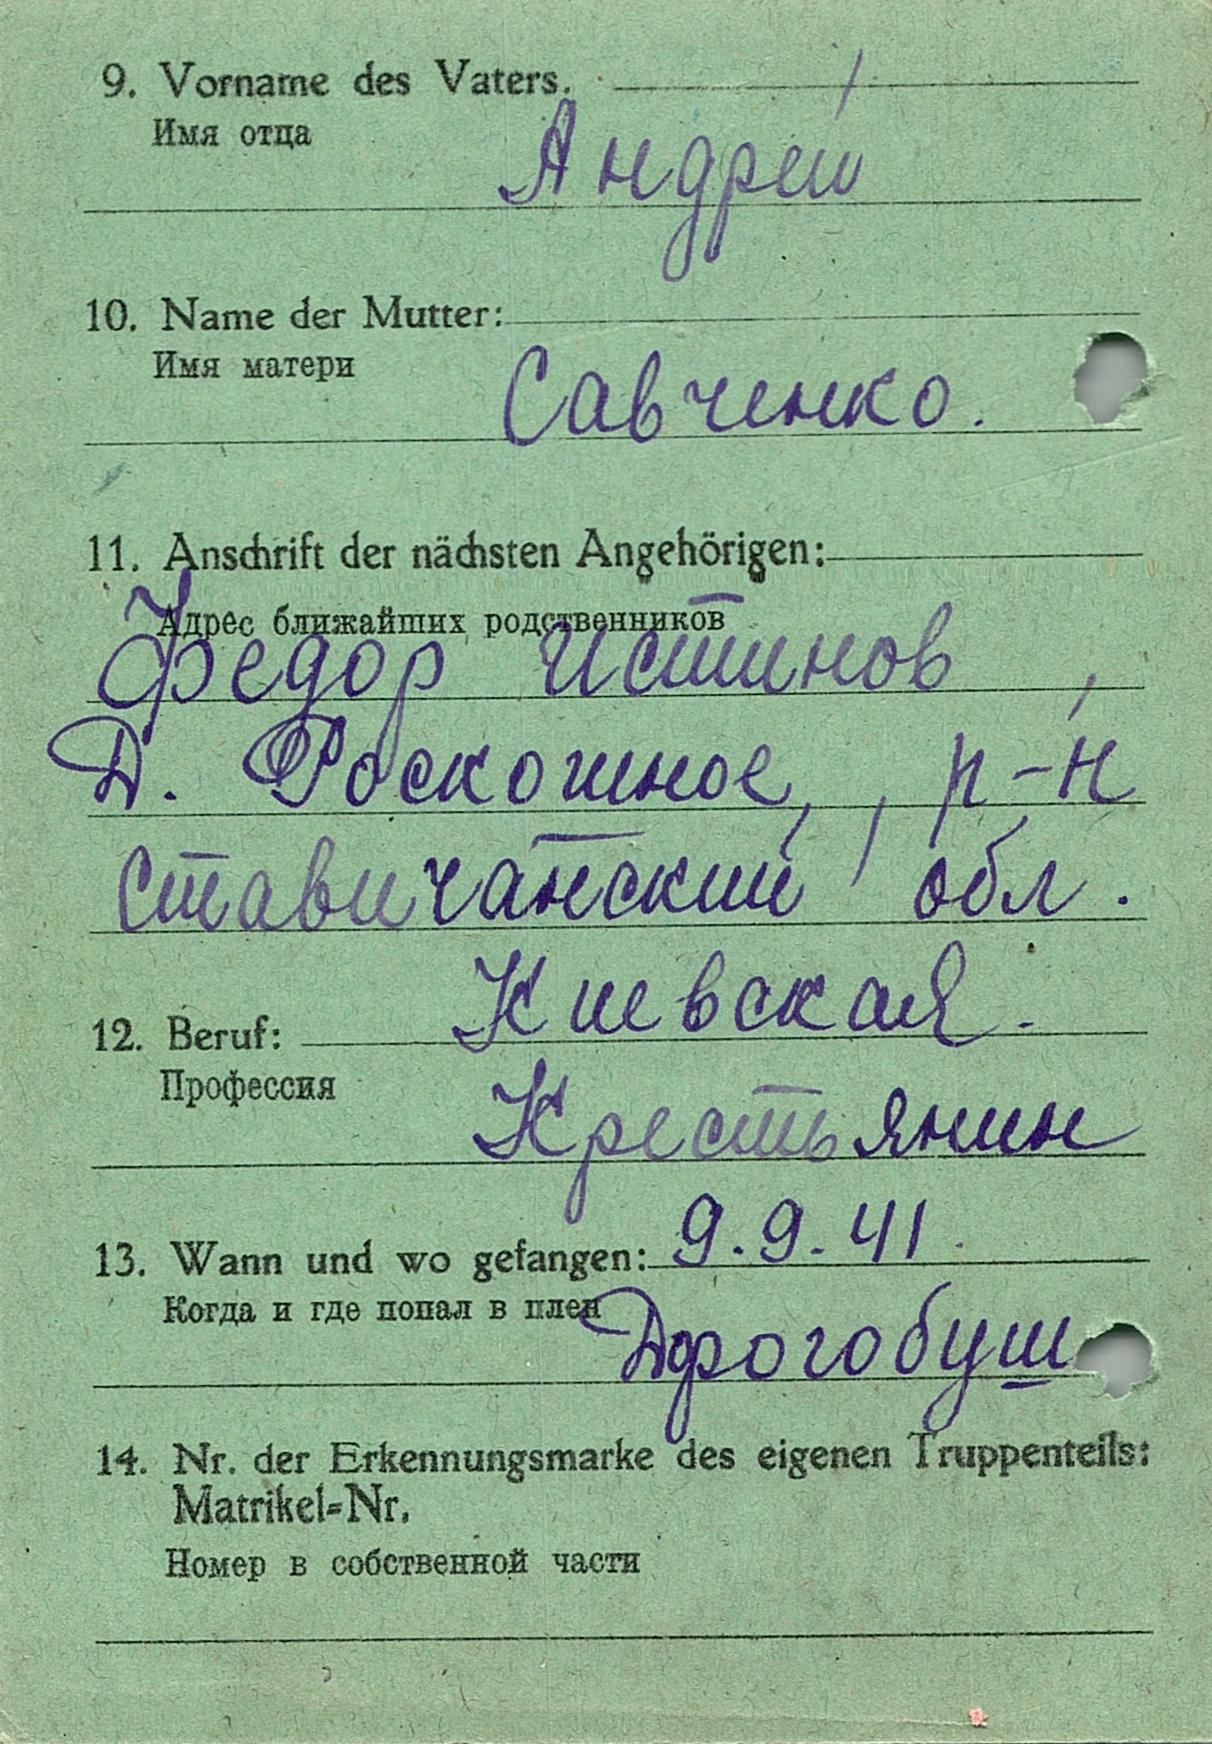 9. Vorname des Vaters.
Имя отца
Андрей
10. Name der Mutter:
Имя матери
Савченко.
11. Anschrift der nächsten Angehörigen:
Адрес ближайших родственников
Федор Истинов,
Д. Роскошное, р-н
Ставичанский, обл.
Киевская.
12. Beruf:
Профессия
Крестьянин
13. Wann und wo gefangen: 9.9.41.
Когда и где попал в плен
Дрогобуш
14. Nr. der Erkennungsmarke des eigenen Truppenteils:
Matrikel=Nr.
Номер в собственной части